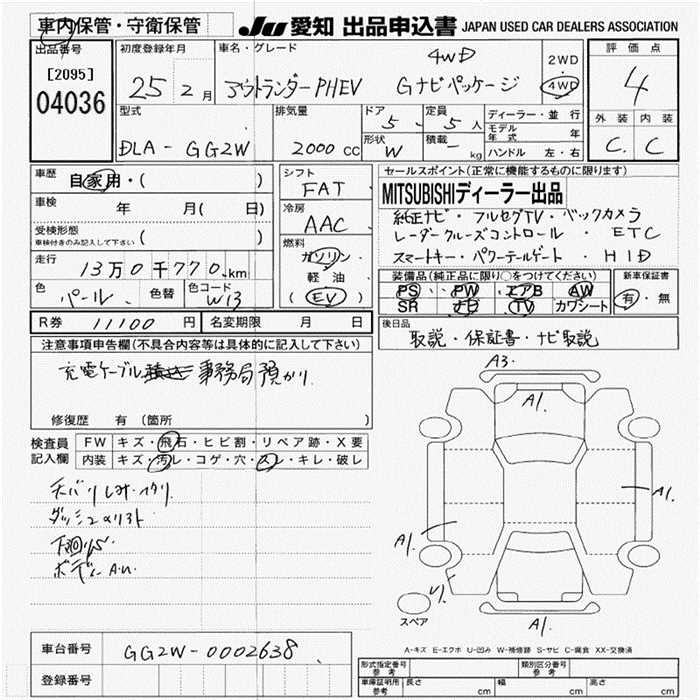 車内保管・守衛保管 JU 愛知 出品申込書 JAPAN USED CAR DEALERS ASSOCIATION
出品番号 [2095] 04036
初度登録年月 25 2月
車名・グレード アウトランダーPHEV 4WD Gナビパッケージ
2WD 4WD
評価点 4
外装 内装
C. C
型式 DLA-GG2W
排気量 2000cc
ドア 5 定員 5人
形状 W 積載 - kg
ディーラー・並行
モデル年式 年
ハンドル 左・右
車歴 自家用・( )
車検 年 月( 日)
受検形態 車検付きのみ記入して下さい ( )
走行 13万0千770km
色 パール 色替 色コード W13
シフト FAT
冷房 AAC
燃料 ガソリン・軽油・(EV)
セールスポイント(正常に機能するものに限ります)
MITSUBISHIディーラー出品
純正ナビ・フルセグTV・バックカメラ
レーダークルーズコントロール・ETC
スマートキー・パワーテールゲート・HID
装備品(純正品に限り○をつけてください)
PS PW エアB AW
SR ナビ TV カワシート
新車保証書 有・無
R券 11100円 名変期限 月 日
後日品 取説・保証書・ナビ取説
注意事項申告欄(不具合内容等は具体的に記入して下さい)
充電ケーブル 事務局預かり
修復歴 有(箇所
検査員記入欄
FW キズ・飛石・ヒビ割・リペア跡・X要
内装 キズ・汚レ・コゲ・穴・スレ・キレ・破レ
天バリ
ダッシュ
下廻り
ボディー
A3.
A1.
A1.
A1.
A1.
スペア
A-キズ E-エクボ U-凹み W-補修跡 S-サビ C-腐食 XX-交換済
車台番号 GG2W-0002638
登録番号
形式指定番号 参考 類別区分番号 参考
車庫証明用 参考 長さ cm 幅 cm 高さ cm